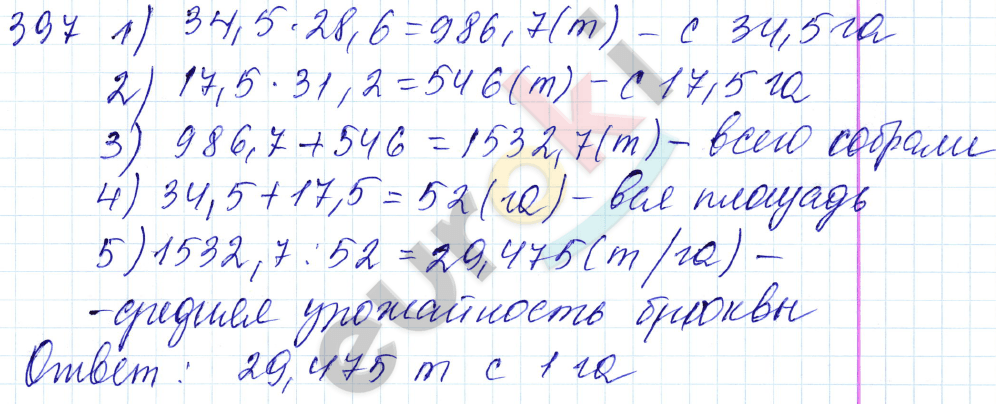 397 1) 34,5 · 28,6 = 986,7 (т) – с 34,5 га
2) 17,5 · 31,2 = 546 (т) – с 17,5 га
3) 986,7 + 546 = 1532,7 (т) – всего собрали
4) 34,5 + 17,5 = 52 (га) – вся площадь
5) 1532,7 : 52 = 29,475 (т/га) –
- средняя урожайность брюквы
Ответ: 29,475 т с 1 га
euroki